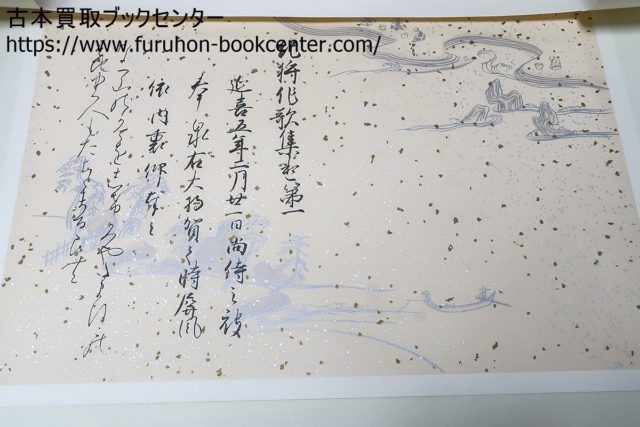 古本買取ブックセンター
https://www.furuhon-bookcenter.com/
紀将作歌集巻第一
延喜五年二月廿一日尚侍之被
奉泉右大将賀之時屏風
依内裏仰奉之